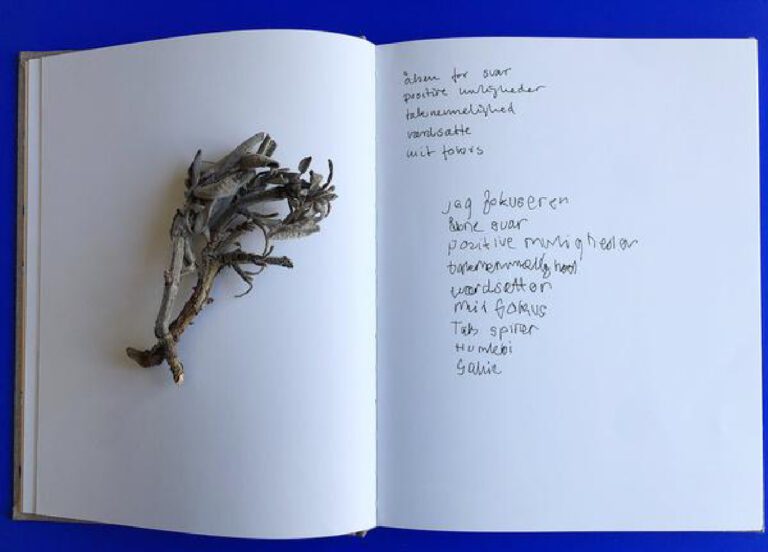 åben for svar
positive muligheder
taknemmelighed
værdsætte
mit fokus
jag fokuseren
åbne svar
positive muligheder
taknemmelighed
værdsætter
mit fokus
Tak spirer
Humlebi